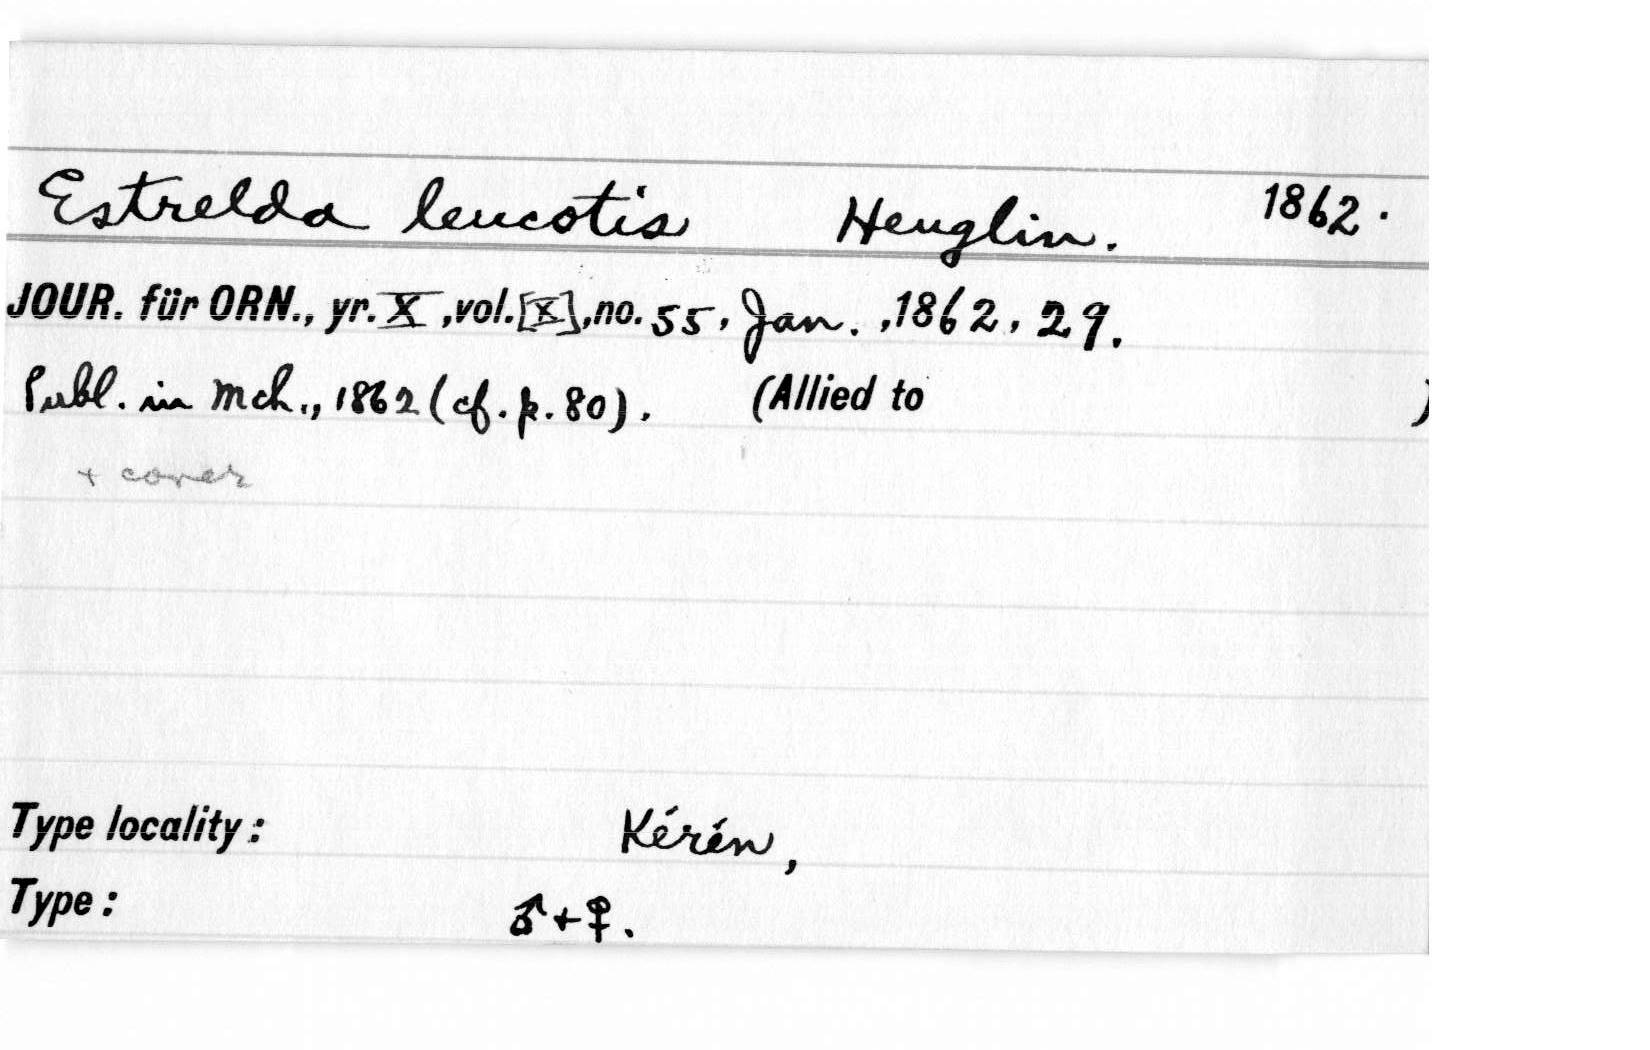 Estrelda leucotis Heuglin. 1862.
JOUR. für ORN., yr. X, vol. [X], no. 55, Jan., 1862, 29.
Publ. in Mch., 1862 (cf. p. 80). (Allied to )
+ cover
Type locality: Kérén,
Type: ♂ + ♀.